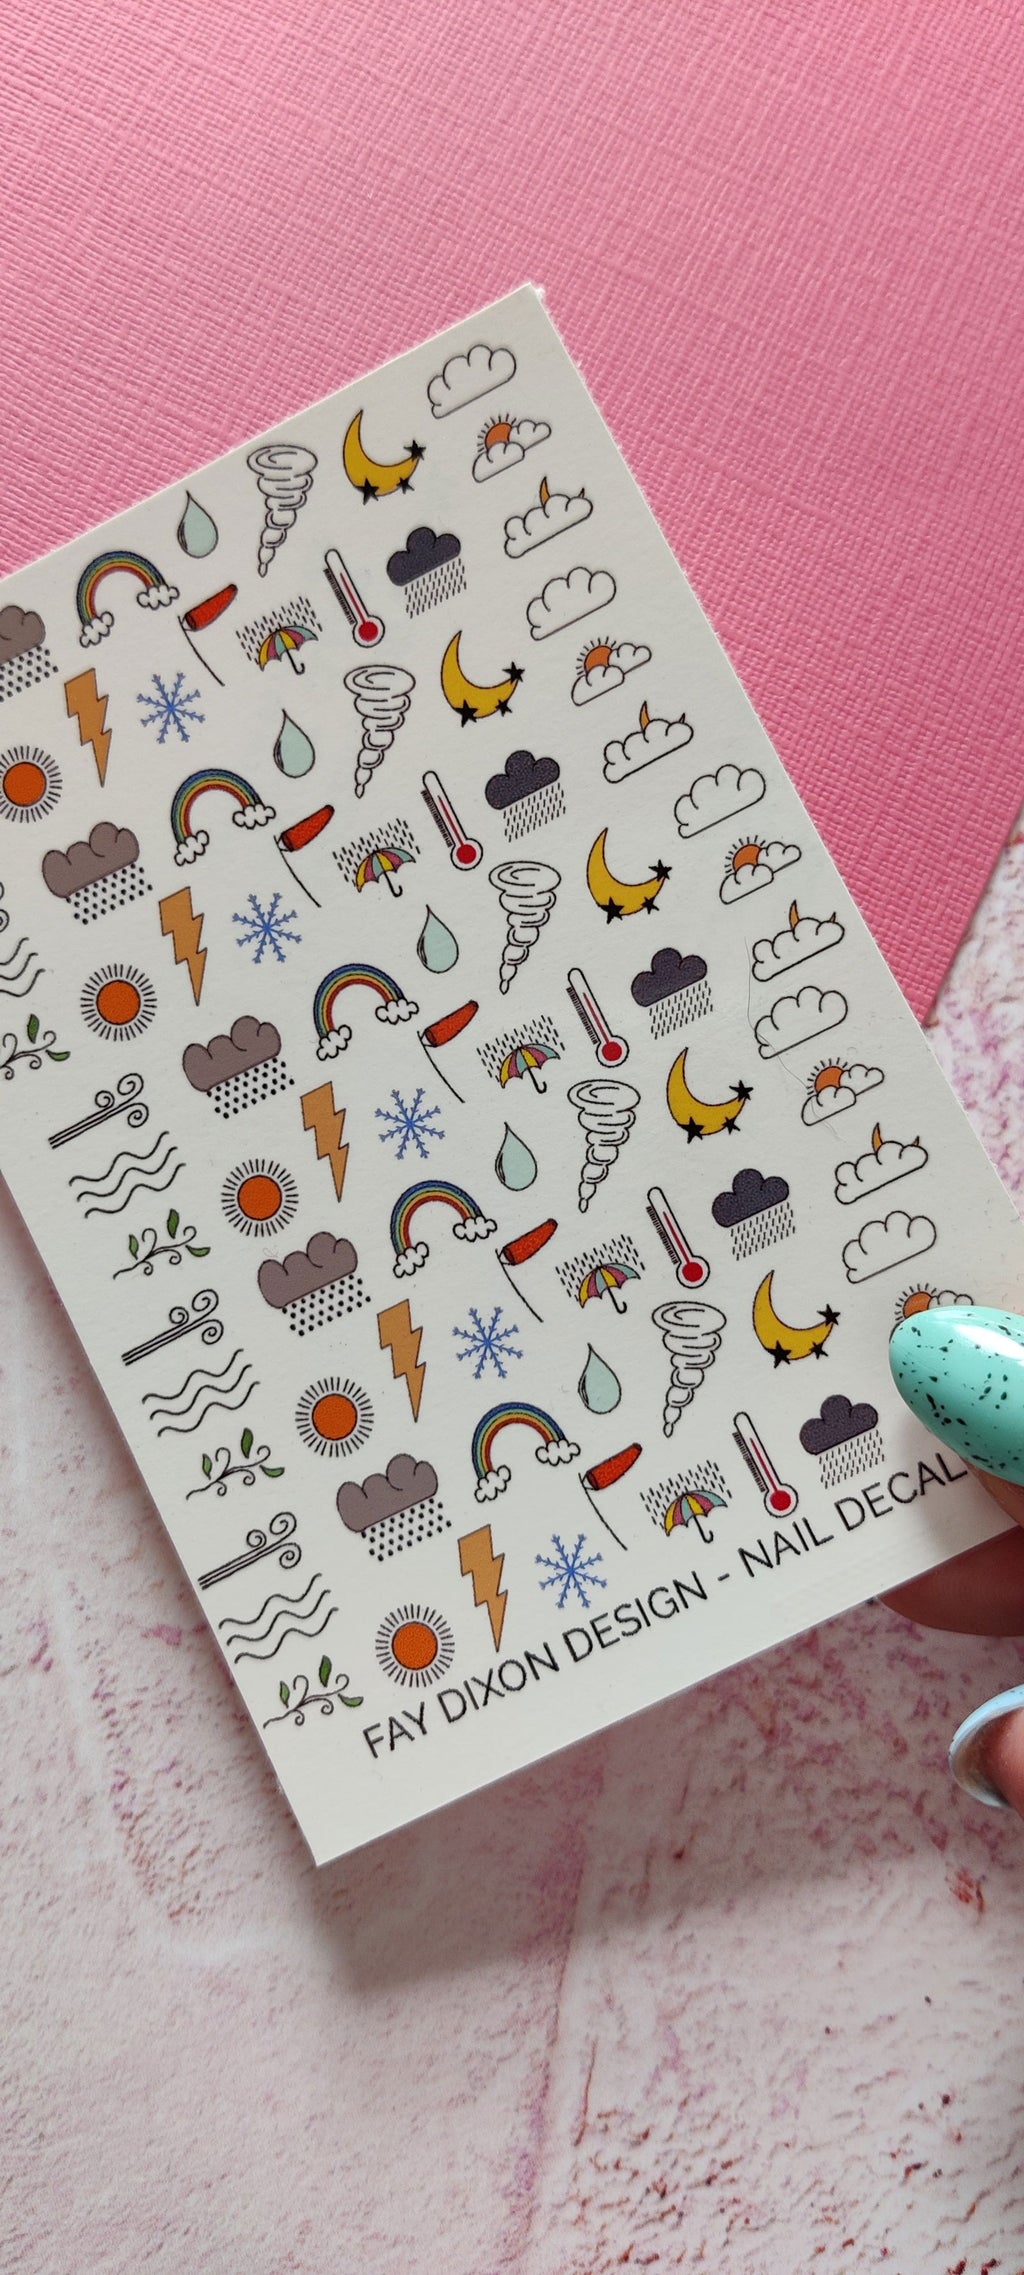 FAY DIXON DESIGN - NAIL DECAL